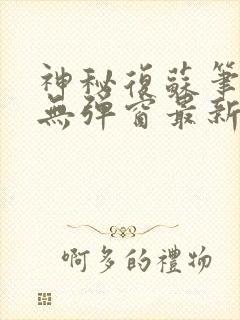 神秘復蘇筆
無彈窗最新
啊多的禮物